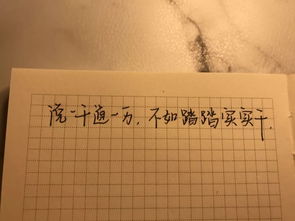 说一千道一万，不如踏踏实实干.